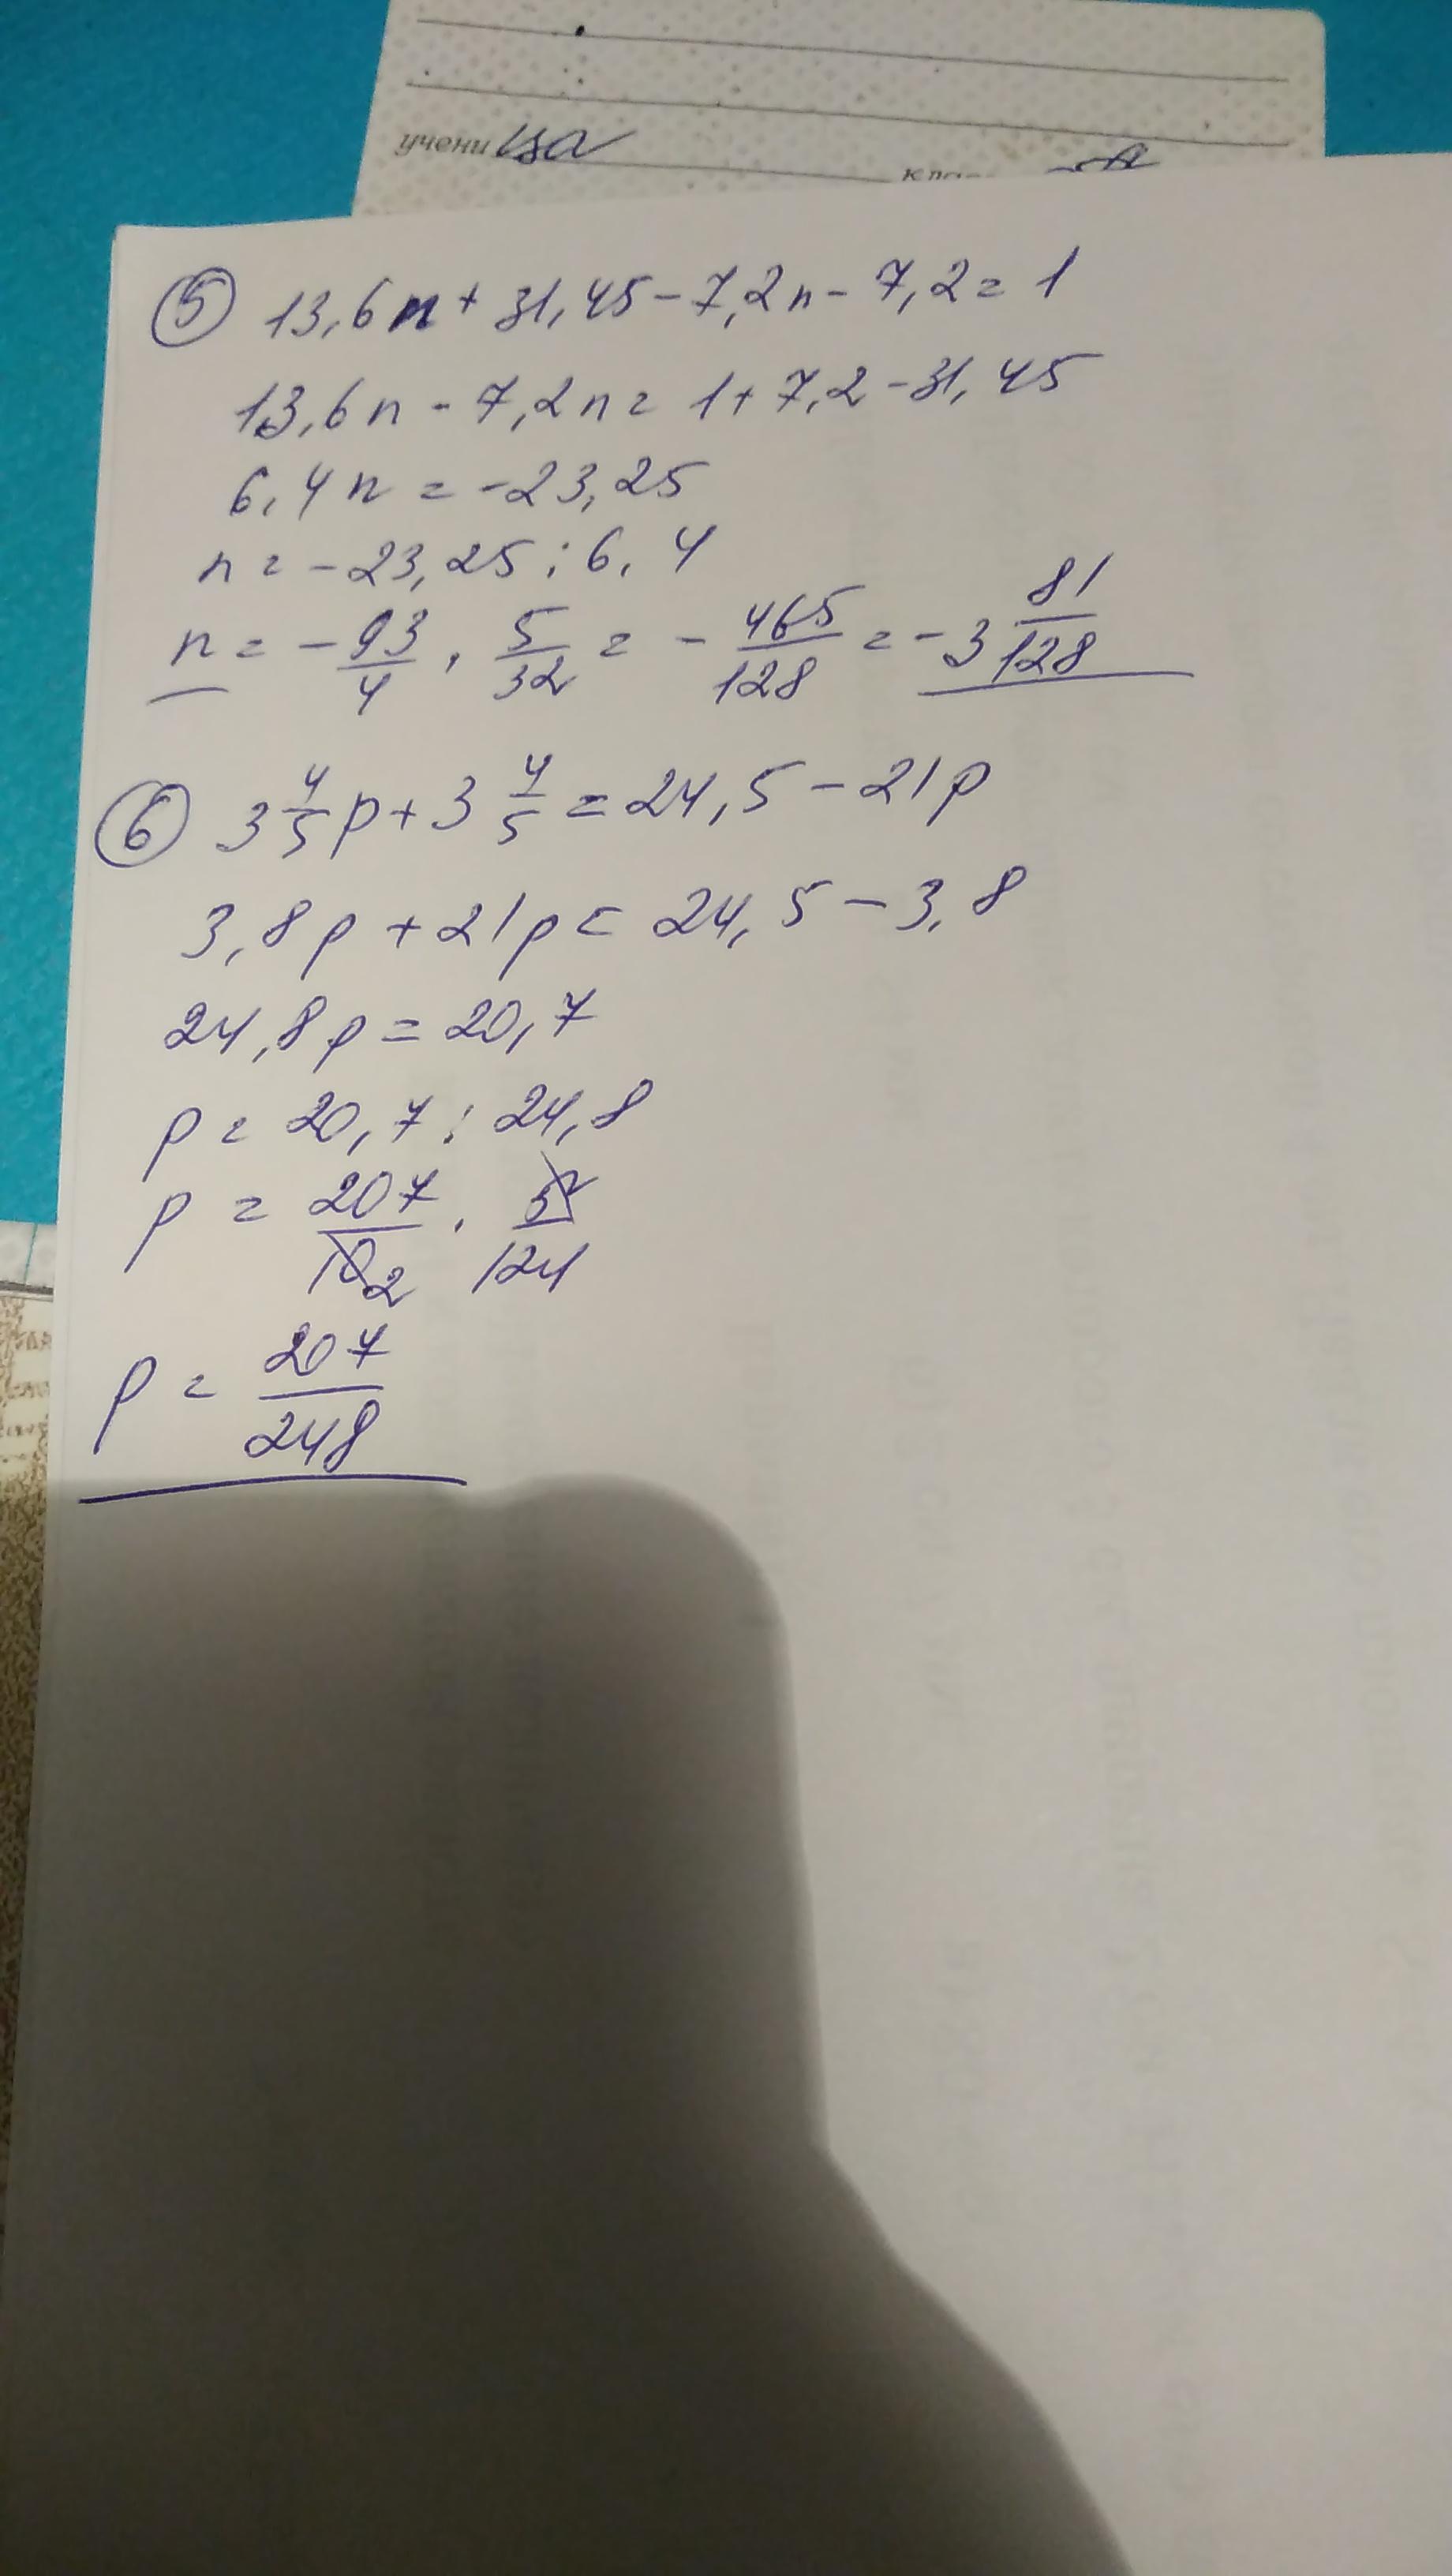 ученица
клас
5 13,6n + 31,45 - 7,2n - 7,2 = 1
13,6n - 7,2n = 1 + 7,2 - 31,45
6,4n = -23,25
n = -23,25 : 6,4
n = -93/4 · 5/32 = -465/128 = -3 81/128
6 3 4/5 p + 3 4/5 = 24,5 - 21p
3,8p + 21p = 24,5 - 3,8
24,8p = 20,7
p = 20,7 : 24,8
p = 207/10 2 · 5/124
p = 207/248